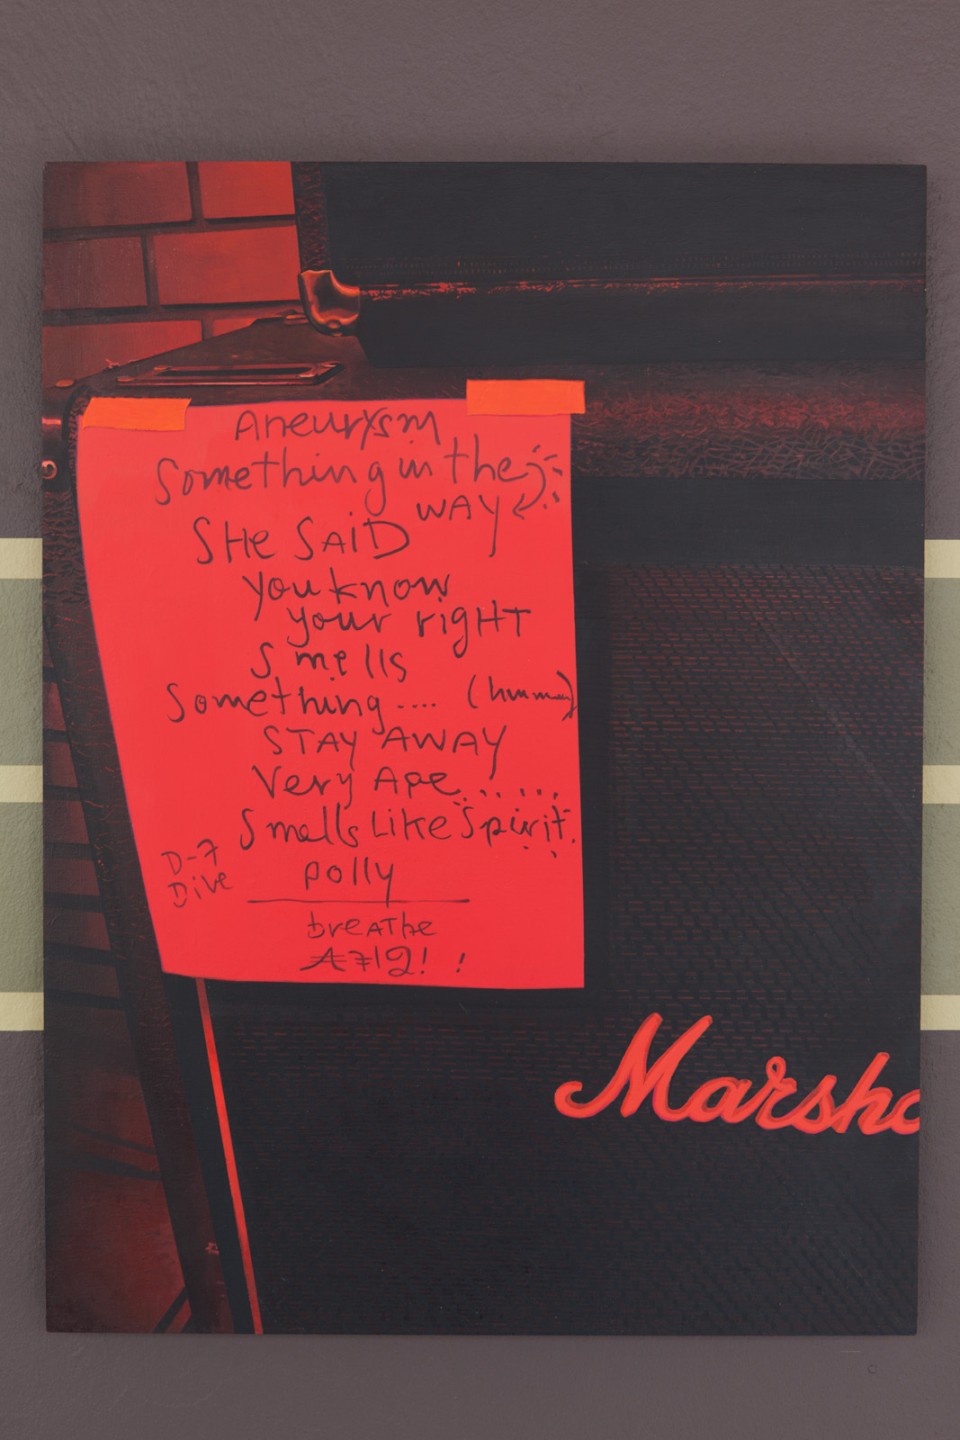 Aneurysm
Something in the
WAY
SHe SAiD
you know
your rigHT
Smells
Something.... (hmmm)
STAY AWAY
Very Ape......
Smells Like Spirit.
D-7
Dive
polly
breATHe
A712! !
Marsha